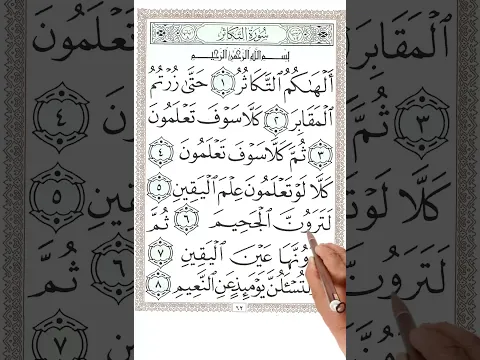 سُورَةُ التَّكَاثُرِ
بِسْمِ اللَّهِ الرَّحْمَٰنِ الرَّحِيمِ
أَلْهَىٰكُمُ ٱلتَّكَاثُرُ ١ حَتَّىٰ زُرْتُمُ
ٱلْمَقَابِرَ ٢ كَلَّا سَوْفَ تَعْلَمُونَ
٣ ثُمَّ كَلَّا سَوْفَ تَعْلَمُونَ ٤
كَلَّا لَوْ تَعْلَمُونَ عِلْمَ ٱلْيَقِينِ ٥
لَتَرَوُنَّ ٱلْجَحِيمَ ٦ ثُمَّ
عَيْنَ ٱلْيَقِينِ ٧
لَتُسْـَٔلُنَّ يَوْمَئِذٍ عَنِ ٱلنَّعِيمِ ٨